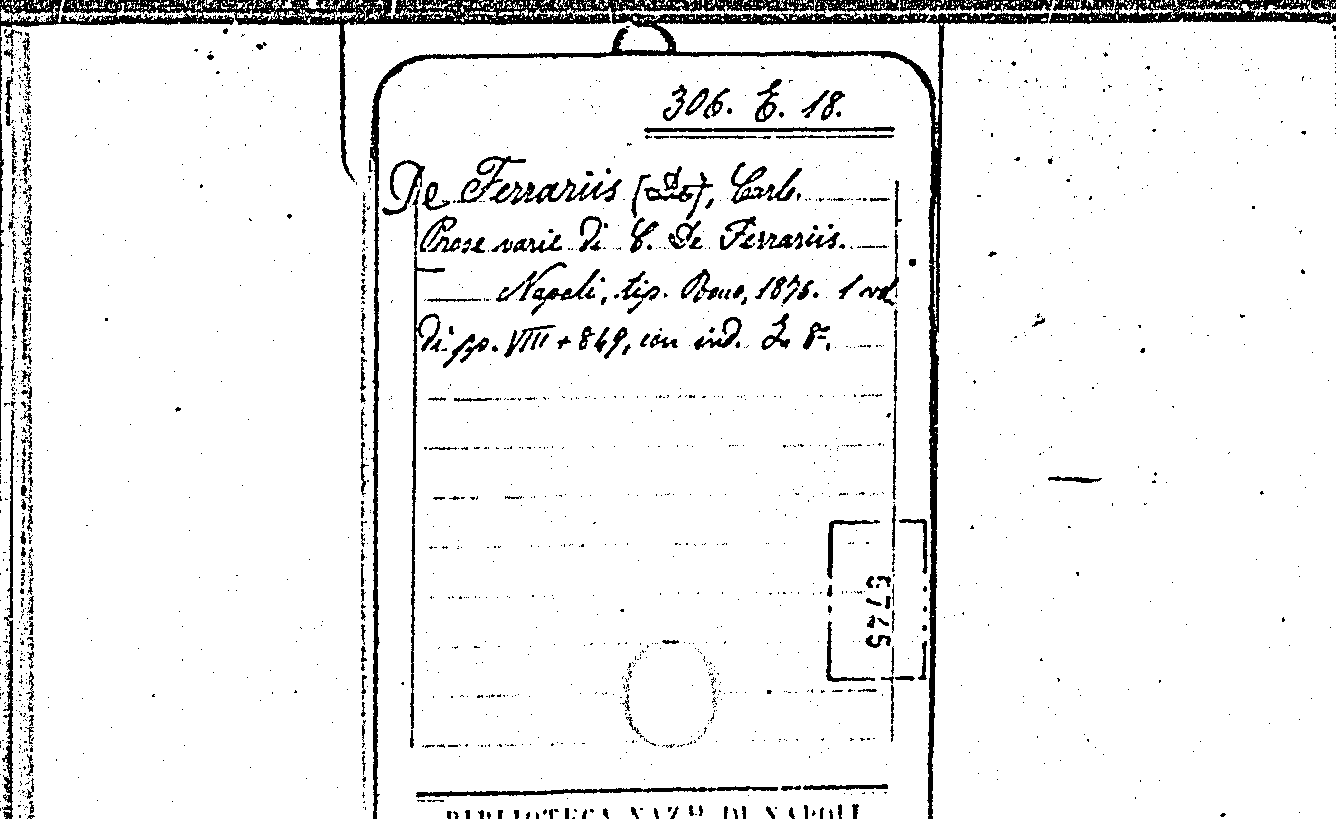 306. E. 18.
De Ferrariis (De), Carlo.
Prose varie di C. De Ferrariis.
Napoli, tip. Bono, 1876. 1 vol.
di pp. VIII + 849, con ind. In 8º.
6745
BIBLIOTECA NAZ.LE DI NAPOLI